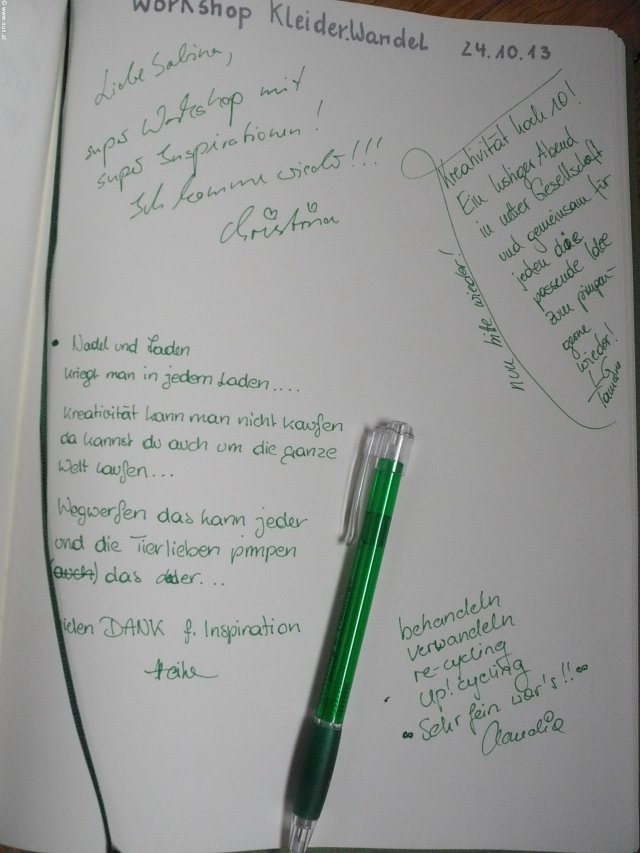 Workshop Kleider.Wandel 24.10.13
Liebe Sabina,
super Workshop mit
super Inspirationen!
Ich komme wieder!!!
Christina
Kreativität hoch 10!
Ein lustiger Abend
in netter Gesellschaft
und gemeinsam für
jeden die
passende Idee
zum pimpen -
gerne
wieder!
LG
Tamara
nur bitte wieder!
• Nadel und Faden
kriegt man in jedem Laden....
Kreativität kann man nicht kaufen
da kannst du auch um die ganze
Welt laufen...
Wegwerfen das kann jeder
und die Tierlieben pimpen
(auch) das oder...
vielen DANK f. Inspiration
Heike
behandeln
verwandeln
re-cycling
up!cycling
Sehr fein war's!!
Claudia